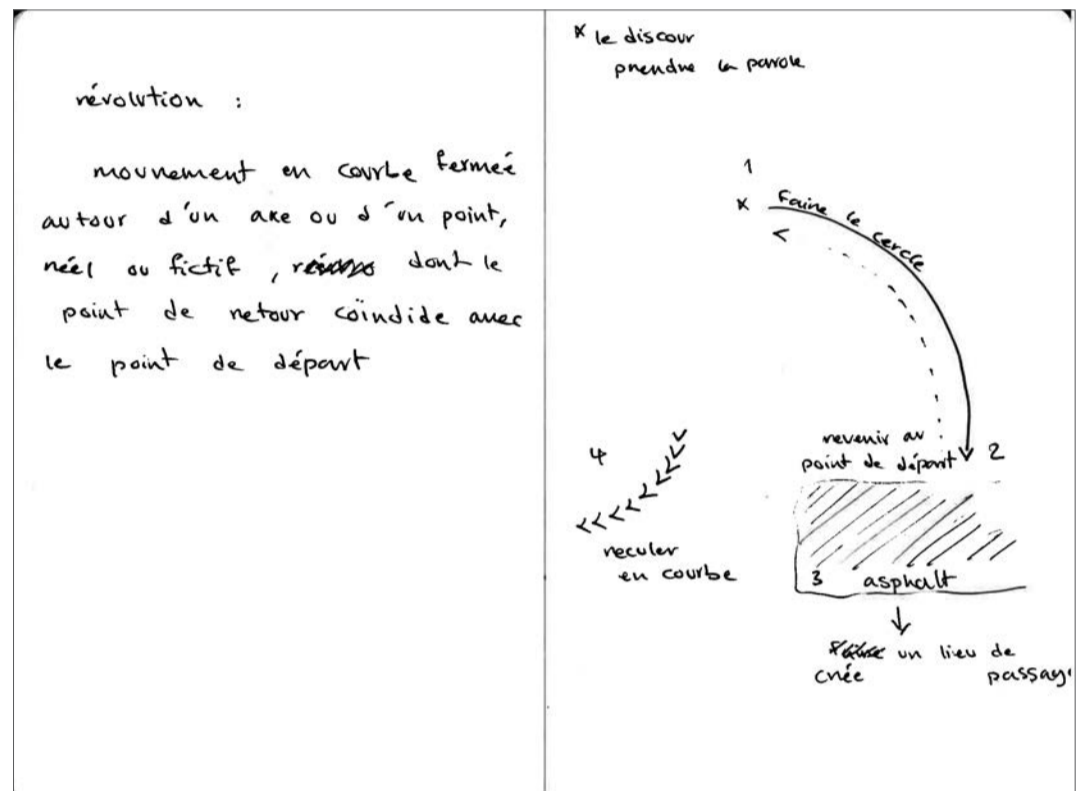 révolution :
mouvement en courbe fermeé
autour d'un axe ou d'un point,
réel ou fictif, dont le
point de retour coïndide avec
le point de départ
x le discour
prendre la parole
1
x faire le cercle
<
revenir au
point de départ 2
4
<<<<<<<<<<
reculer
en courbe
3 asphalt
un lieu de
crée passag